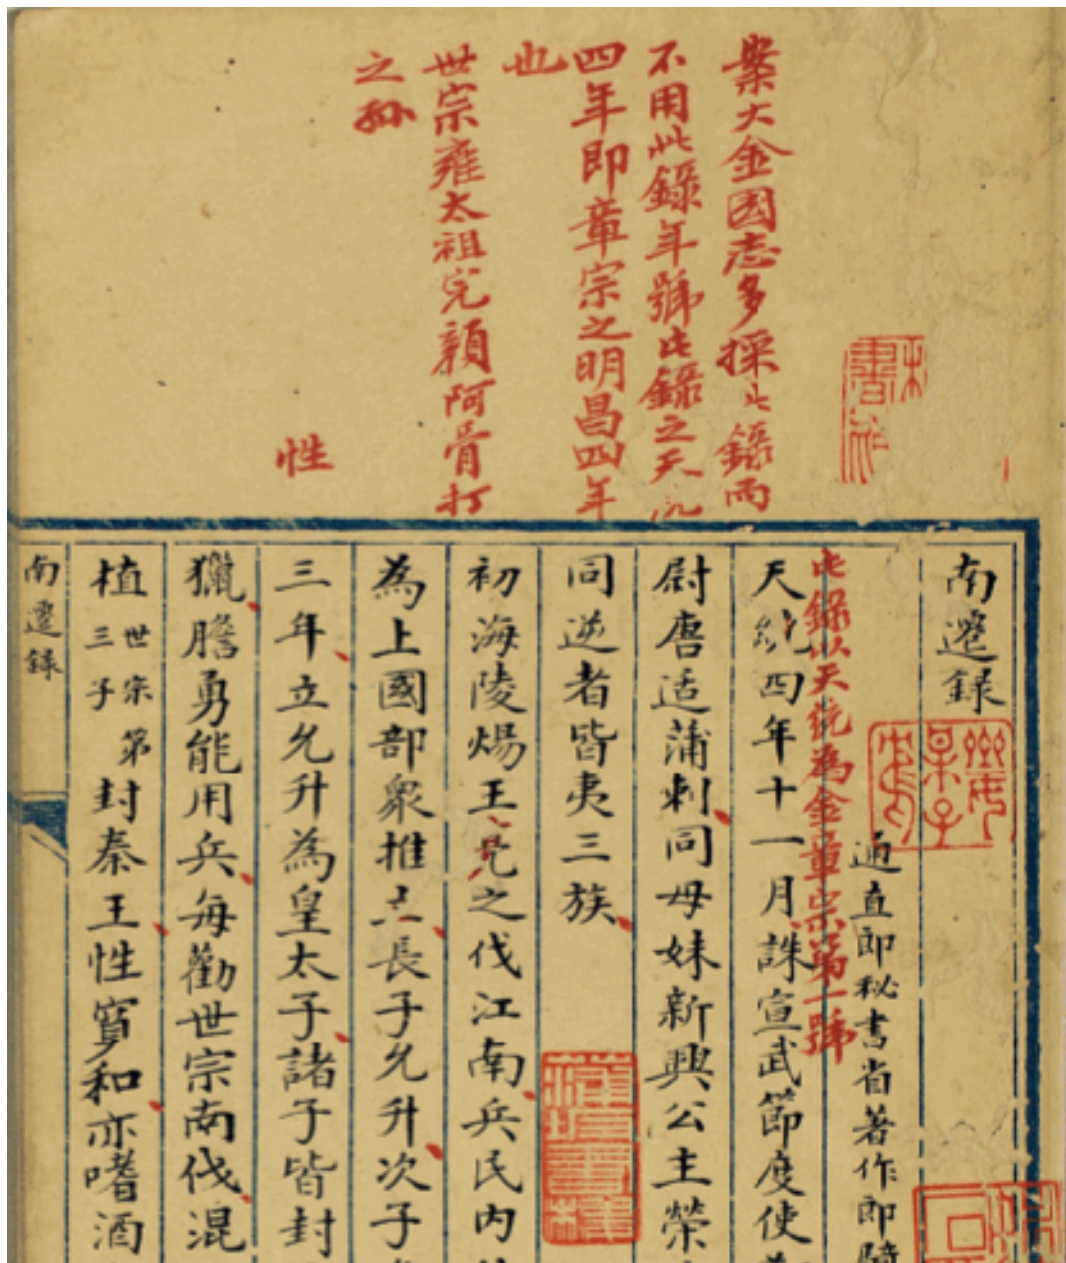 案大金國志多採此錄而
不用此錄年號此錄之天統
四年即章宗之明昌四年
也
世宗雍太祖完顏阿骨打
之孫
性
南遷錄
通直郎秘書省著作郎騎
此錄以天統為金章宗第一號
天統四年十一月誅宣武節度使
尉唐适蒲剌同母妹新興公主榮
同逆者皆夷三族
初海陵煬王亮之伐江南兵民內
為上國部眾推立長子允升次子
三年立允升為皇太子諸子皆封
獵膽勇能用兵每勸世宗南伐混
植世宗第三子封秦王性寬和亦嗜酒
南遷録